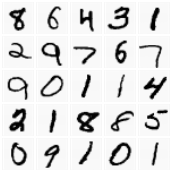 8 6 4 3 1
2 9 7 6 7
9 0 1 1 4
2 1 8 8 5
0 9 1 0 1